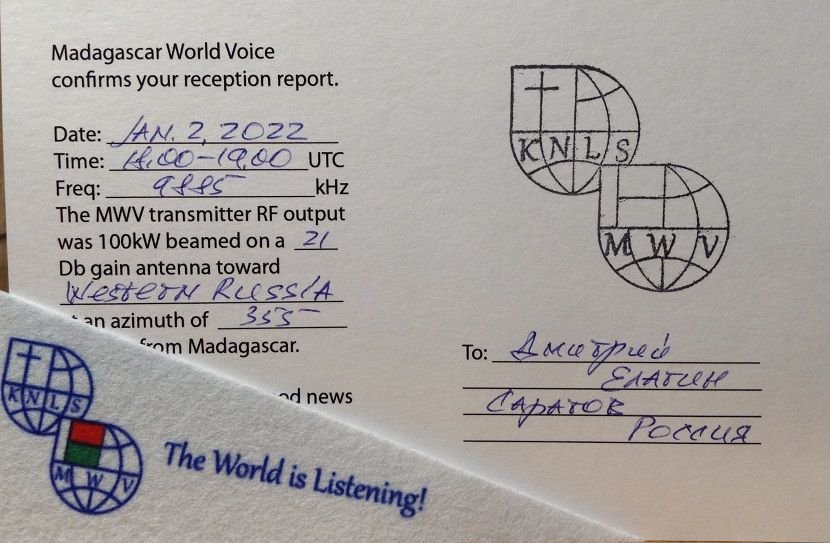 Madagascar World Voice
confirms your reception report.
Date: JAN. 2, 2022
Time: 18.00-19.00 UTC
Freq: 9885 kHz
The MWV transmitter RF output
was 100kW beamed on a 21
Db gain antenna toward
Western Russia
an azimuth of 355
from Madagascar.
news
KNLS
MWV
To: Дмитрий
Елагин
Саратов
Россия
KNLS
MWV
The World is Listening!